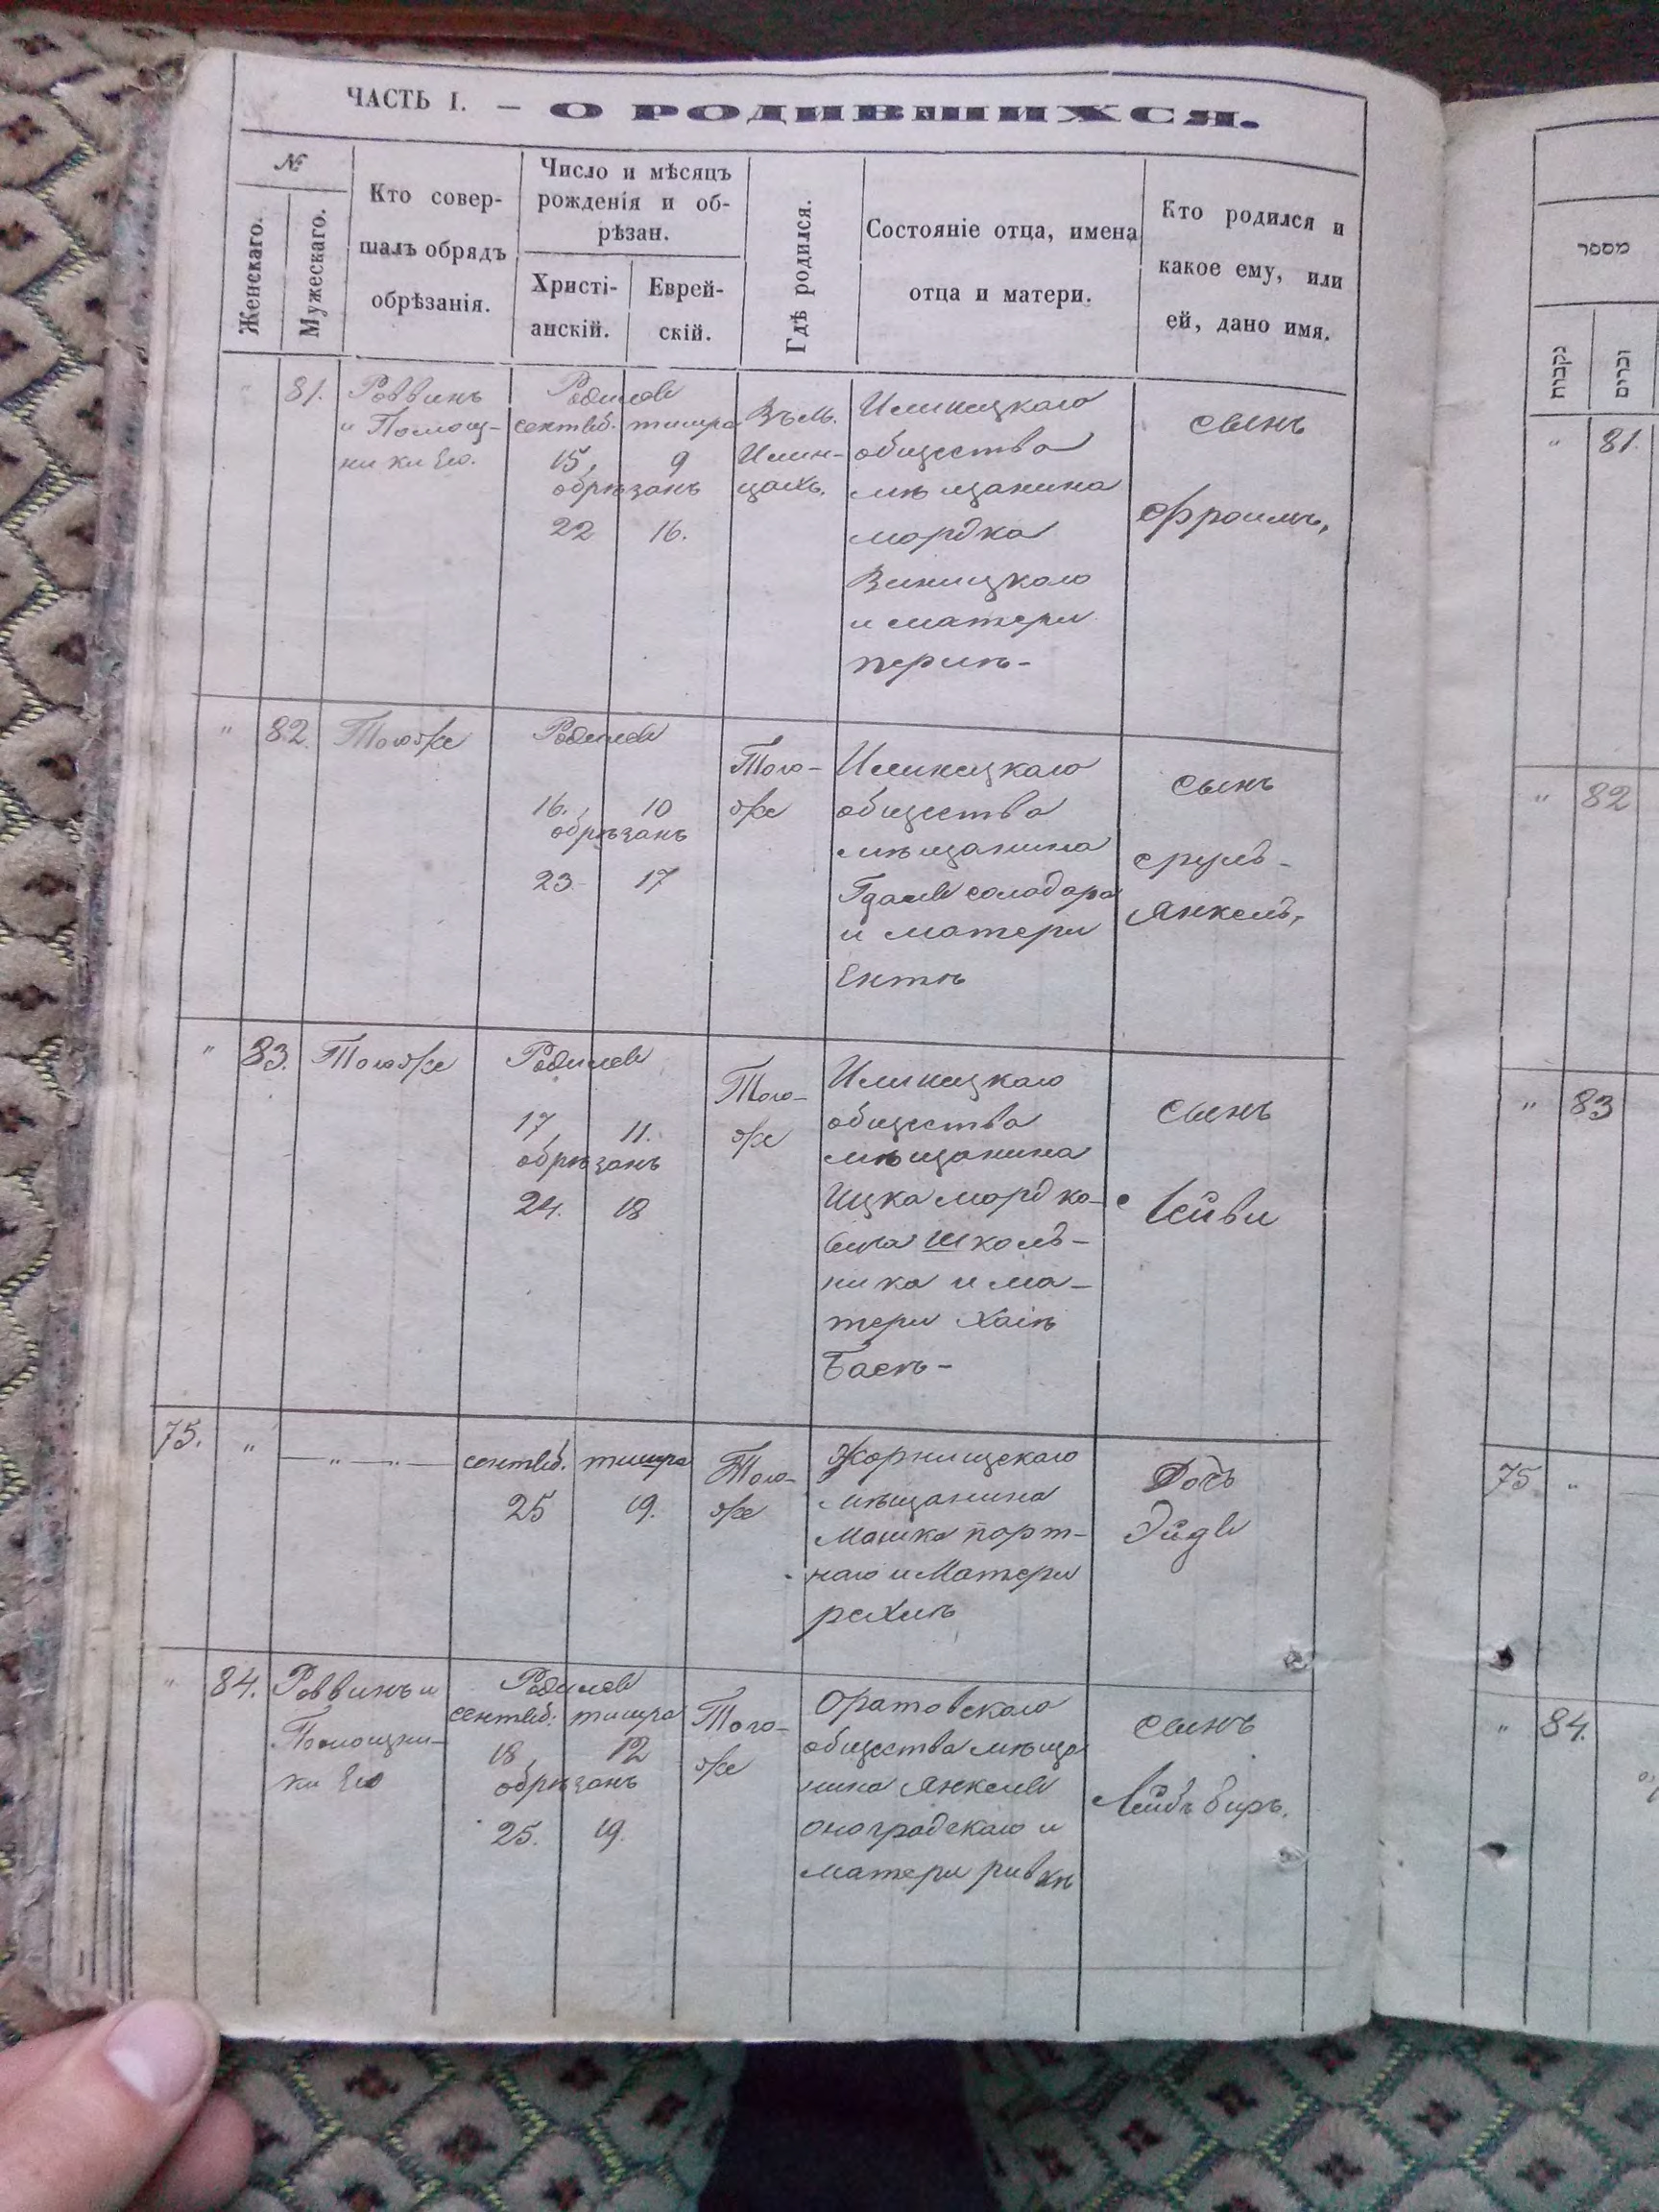 ЧАСТЬ I. — О РОДИВШИХСЯ.
№
Женскаго.
Мужескаго.
Кто совер-
шалъ обрядъ
обрѣзанія.
Число и мѣсяцъ
рожденія и об-
рѣзан.
Христі-
анскій.
Еврей-
скій.
Гдѣ родился.
Состояніе отца, имена
отца и матери.
Кто родился и
какое ему, или
ей, дано имя.
" 81.
Раввинъ
и Помощ-
ники Его.
Родился
сентяб. тишра
15, 9
обрѣзанъ
22 16.
Въ м.
Илин-
цахъ.
Илинецкаго
общества
мѣщанина
мордка
Виницкаго
и матери
перлѣ-
сынъ
Фроимъ,
" 82.
Тогоже
Родился
16., 10
обрѣзанъ
23. 17
Того-
же
Илинецкаго
общества
мѣщанина
Гдаля солодара
и матери
Ентѣ
сынъ
сруль-
Янкель,
" 83.
Тогоже
Родился
17, 11.
обрѣзанъ
24. 18
Того-
же
Илинецкаго
общества
мѣщанина
Ицка мордко-
вича школь-
ника и ма-
тери Хаіѣ
Басѣ-
сынъ
Лейви
75. "
— " — " —
сентяб. тишра
25 19.
Того-
же
Жорнищскаго
мѣщанина
Мошка порт-
наго и Матери
рехилѣ
Дочь
Эйдля
" 84.
Раввинъ и
Помощни-
ки Его
Родился
сентяб: тишра
18, 12
обрѣзанъ
25. 19.
Того-
же
Оратовскаго
общества мѣща
нина Янкеля
оноградскаго и
матери ривкѣ
сынъ
Лейбъ Беръ.
מספר
נקבות
זכרים
" 81.
" 82
" 83
75 "
" 84.